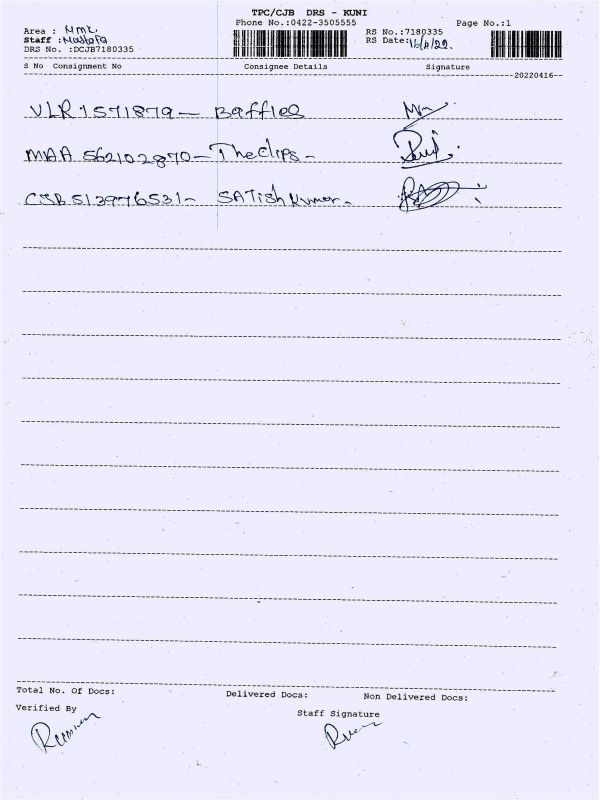 TPC/CJB DRS - KUNI
Phone No.:0422-3505555
Page No.:1
Area : NMK
Staff : Mustafa
DRS No. :DCJB7180335
RS No.:7180335
RS Date:16/4/22.
S No Consignment No Consignee Details Signature
20220416
VLR1571879 - Baffles
MAA 562102870 - The Clips -
CJB 513976531 - SATish Kumar.
Total No. Of Docs: Delivered Docs: Non Delivered Docs:
Verified By
Staff Signature